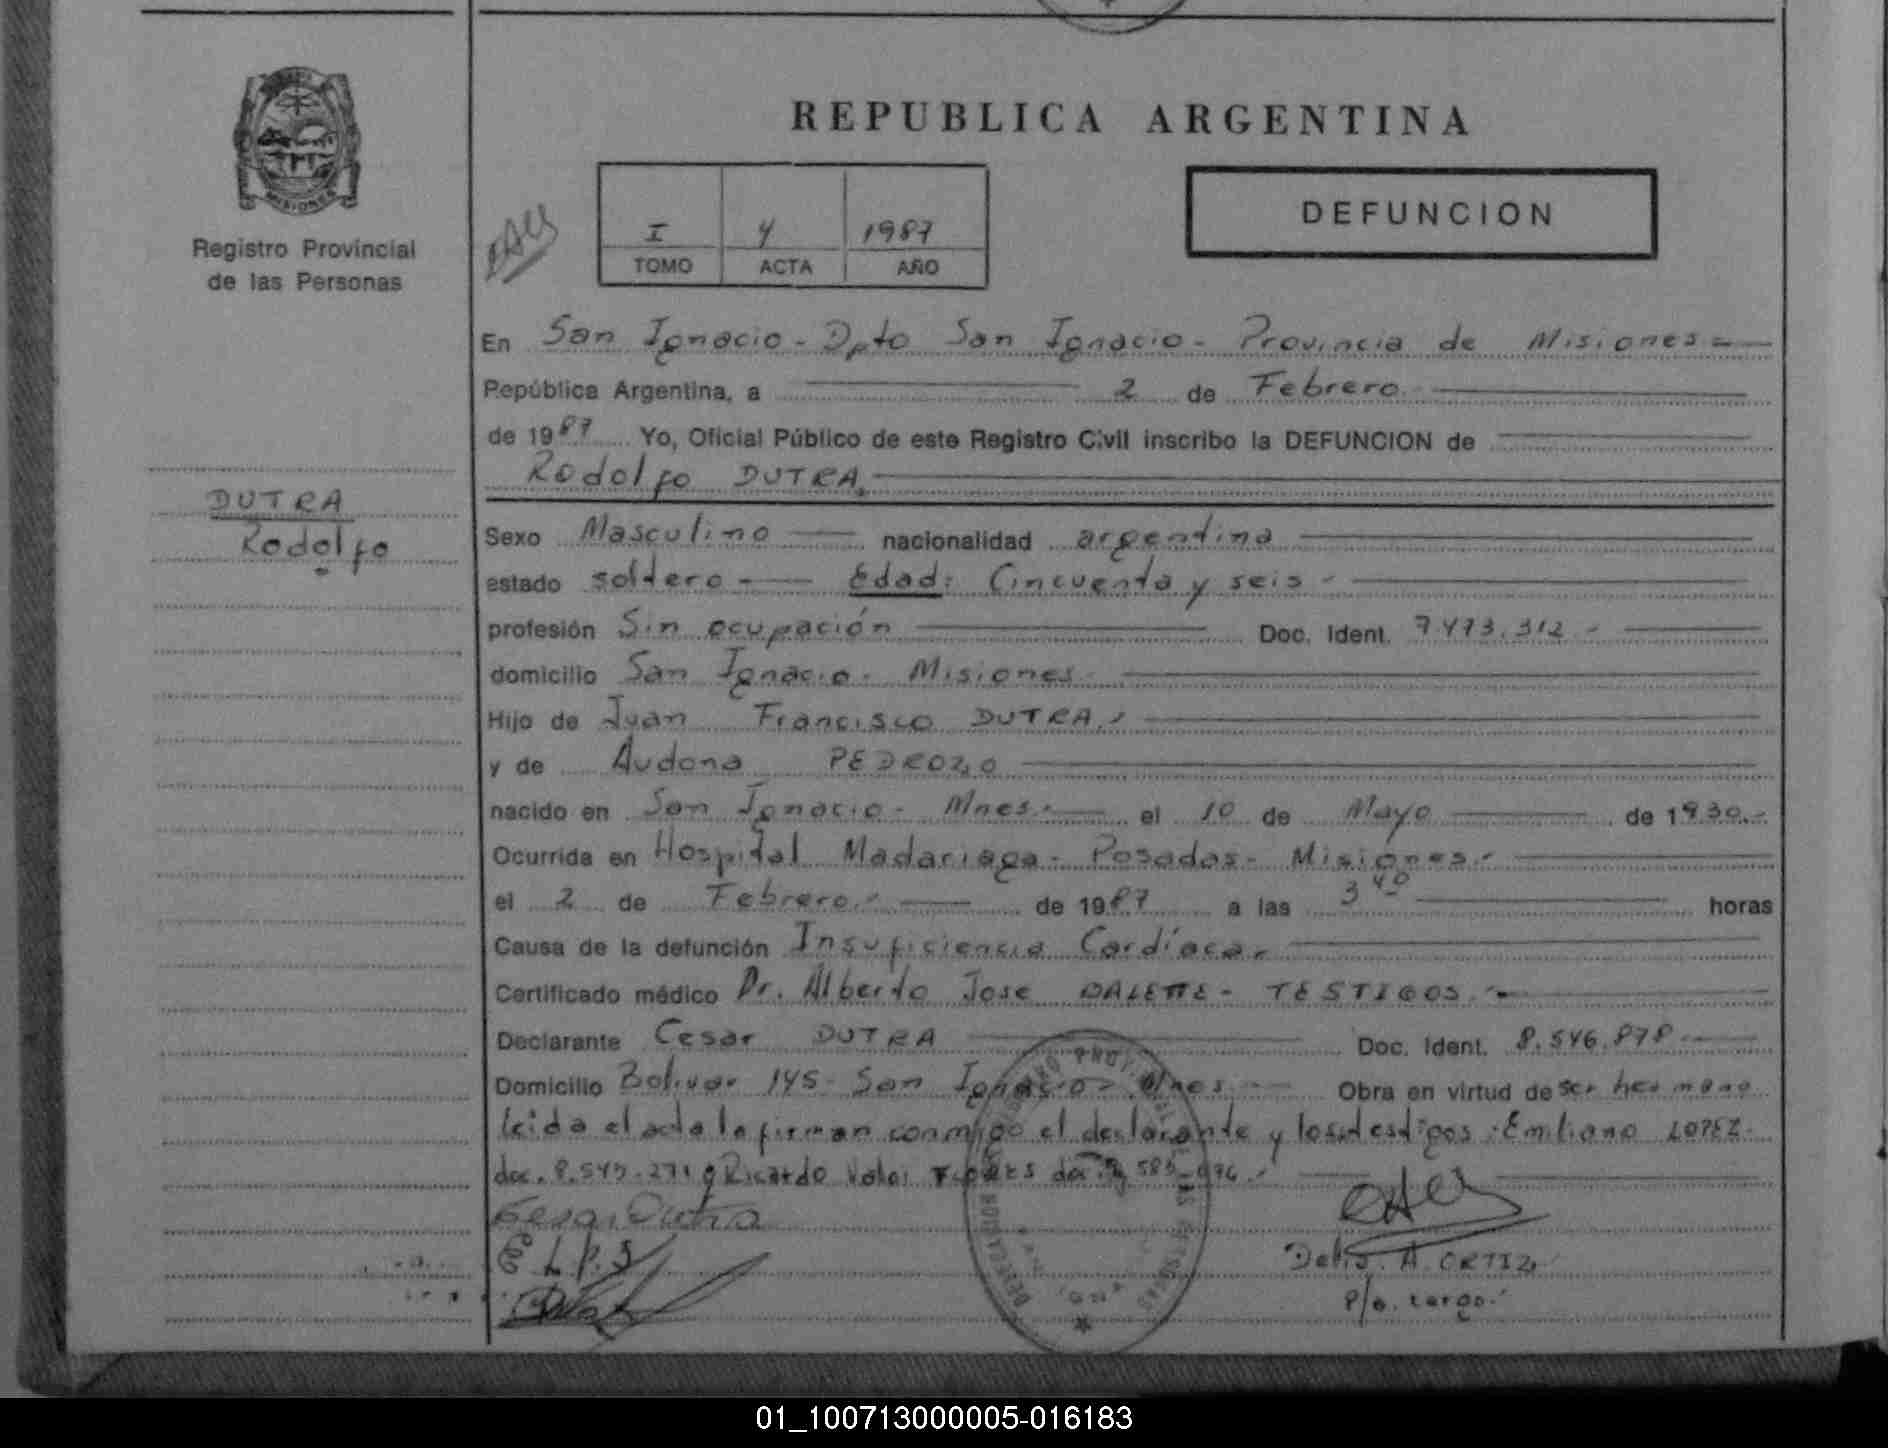 MISIONES
Registro Provincial
de las Personas
DUTRA
Rodolfo
REPUBLICA ARGENTINA
I 4 1987
TOMO ACTA AÑO
DEFUNCION
En San Ignacio - Dpto San Ignacio - Provincia de Misiones -
República Argentina, a 2 de Febrero
de 1987 Yo, Oficial Público de este Registro Civil inscribo la DEFUNCION de
Rodolfo DUTRA
Sexo Masculino nacionalidad argentina
estado soltero - Edad: Cincuenta y seis -
profesión Sin ocupación Doc. Ident. 7.473.312 -
domicilio San Ignacio - Misiones
Hijo de Juan Francisco DUTRA.-
y de Audona PEDROZO
nacido en San Ignacio - Mnes.- el 10 de Mayo de 1930.-
Ocurrida en Hospital Madariaga - Posadas - Misiones.-
el 2 de Febrero.- de 1987 a las 3 40 horas
Causa de la defunción Insuficiencia Cardíaca.
Certificado médico Dr. Alberto Jose - TESTIGOS.-
Declarante Cesar DUTRA Doc. Ident. 8.546.878
Domicilio Bolivar 145 - San Ignacio - Mnes.- Obra en virtud de ser hermano
leida el acta la firman conmigo el declarante y los testigos: Emiliano LOPEZ -
doc. 8.545.271 y Ricardo doc.
Cesar Dutra
E L.P.S
A. ORTIZ
p/a. cargo.
01_100713000005-016183